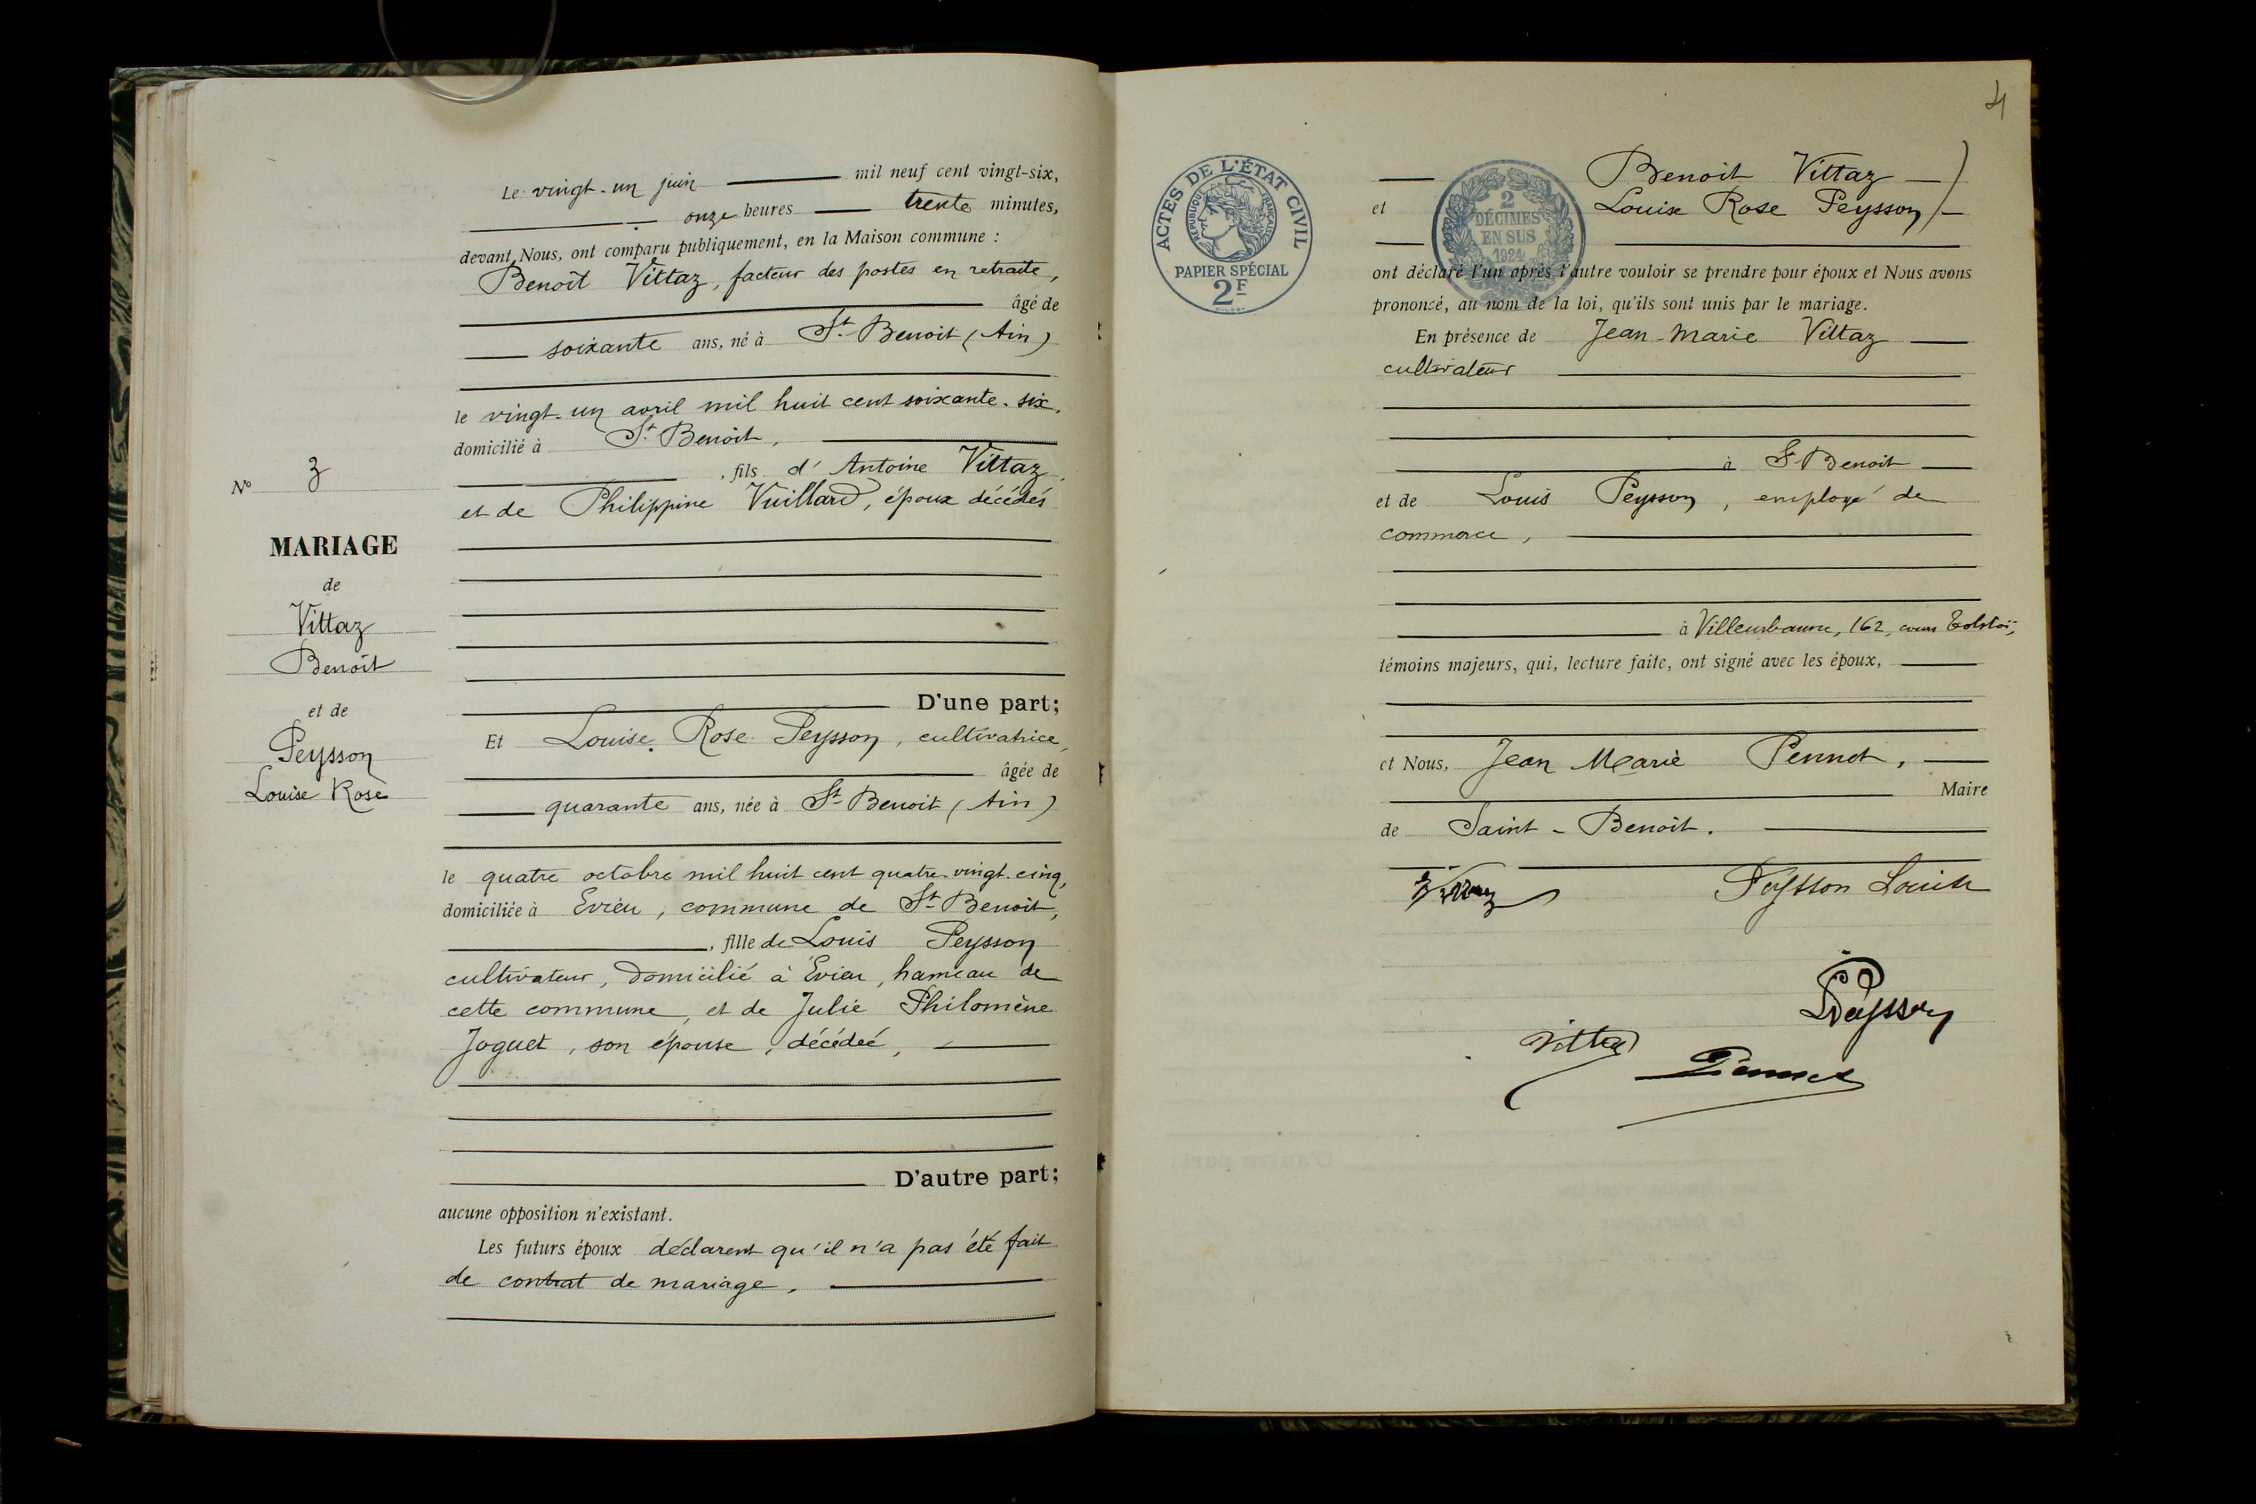 Le vingt-un juin mil neuf cent vingt-six,
onze heures trente minutes,
devant Nous, ont comparu publiquement, en la Maison commune :
Benoît Vittaz, facteur des postes en retraite,
âgé de
soixante ans, né à St-Benoit (Ain)
le vingt-un avril mil huit cent soixante-six,
domicilié à St Benoit,
, fils d'Antoine Vittaz
et de Philippine Vuillard, époux décédés
No 3
MARIAGE
de
Vittaz
Benoît
et de
Peysson
Louise Rose
D'une part;
Et Louise Rose Peysson, cultivatrice,
âgée de
quarante ans, née à St-Benoit (Ain)
le quatre octobre mil huit cent quatre-vingt-cinq,
domiciliée à Evieu, commune de St-Benoit,
, fille de Louis Peysson
cultivateur, domicilié à Evieu, hameau de
cette commune, et de Julie Philomène
Joguet, son épouse, décédée,
D'autre part;
aucune opposition n'existant.
Les futurs époux déclarent qu'il n'a pas été fait
de contrat de mariage.
4
ACTES DE L'ÉTAT CIVIL
RÉPUBLIQUE FRANÇAISE
PAPIER SPÉCIAL
2F
2
DÉCIMES
EN SUS
1924
Benoit Vittaz
et Louise Rose Peysson
ont déclaré l'un après l'autre vouloir se prendre pour époux et Nous avons
prononcé, au nom de la loi, qu'ils sont unis par le mariage.
En présence de Jean-Marie Vittaz
cultivateur
à St-Benoit
et de Louis Peysson, employé de
commerce,
à Villeurbanne, 162, cours Tolstoï,
témoins majeurs, qui, lecture faite, ont signé avec les époux,
et Nous, Jean Marie Pennet,
Maire
de Saint-Benoît.
Peysson Louise
Peysson
Vittaz
Pennet